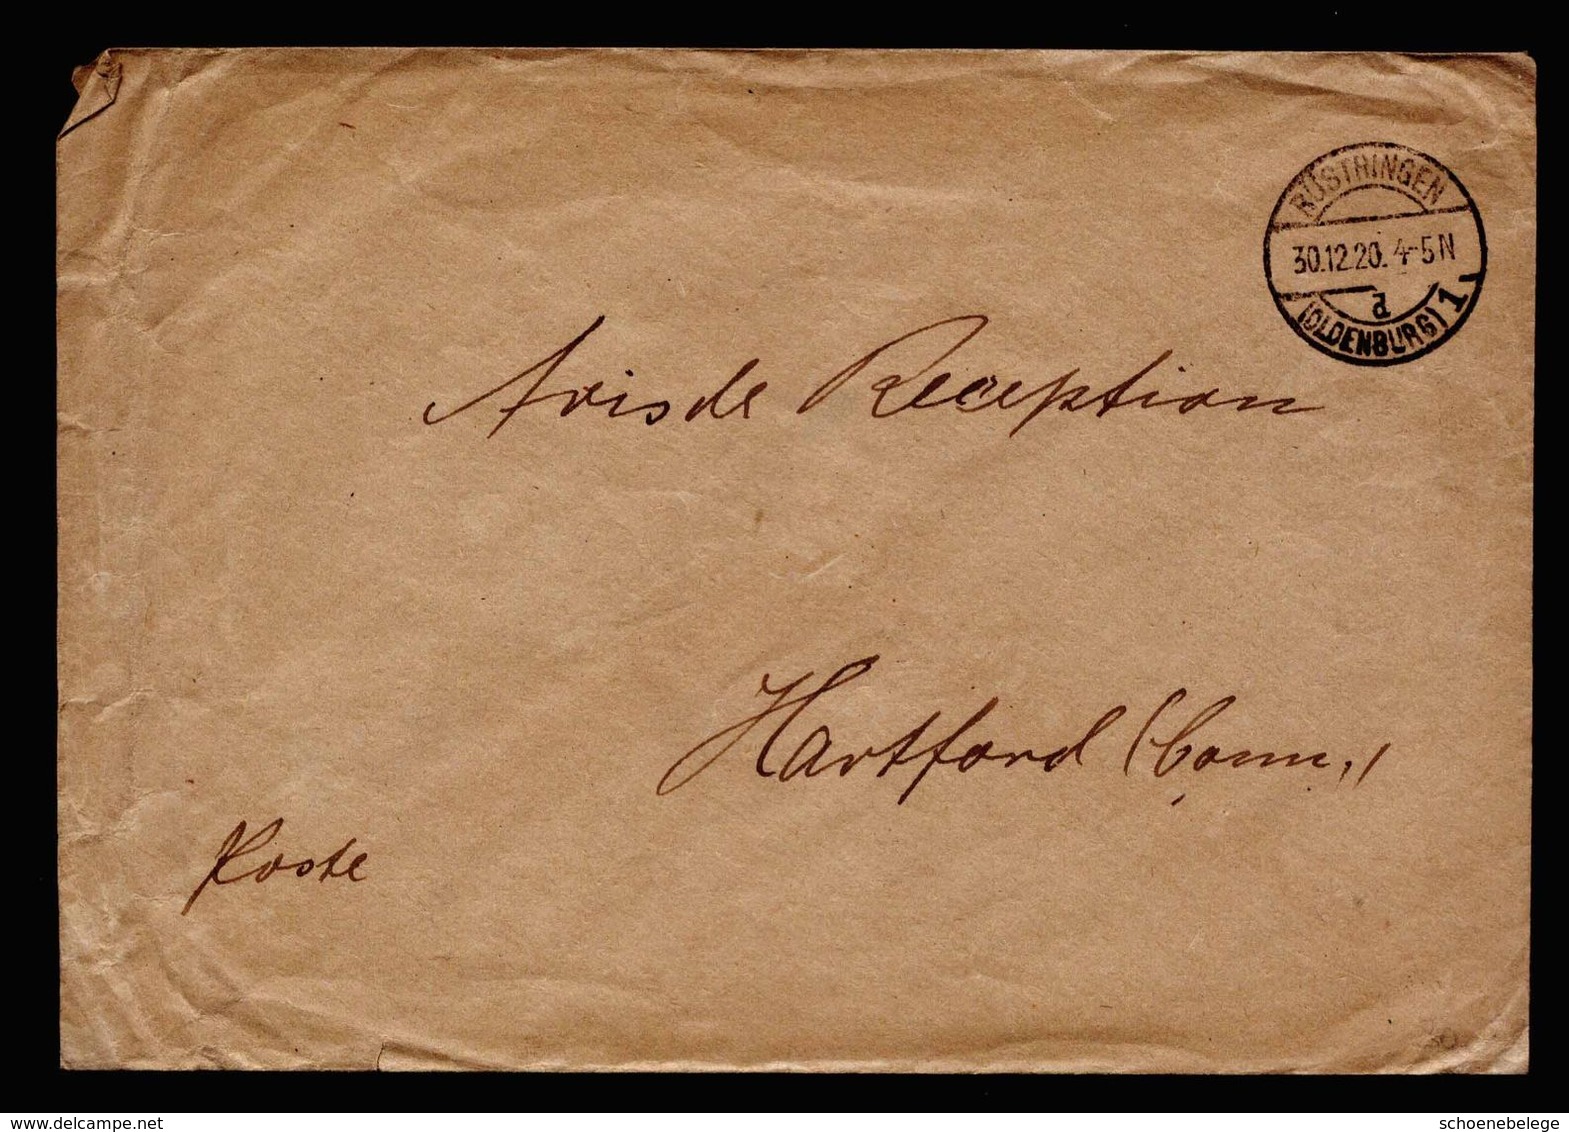 RÜSTRINGEN
30.12.20. 4-5N
d
(OLDENBURG) 1
Avis de Reception
Hartford (Conn.)
Poste
www.delcampe.net
schoenebelege